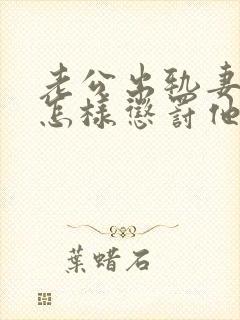 老公出轨妻
怎樣懲罰他
葉蜡石